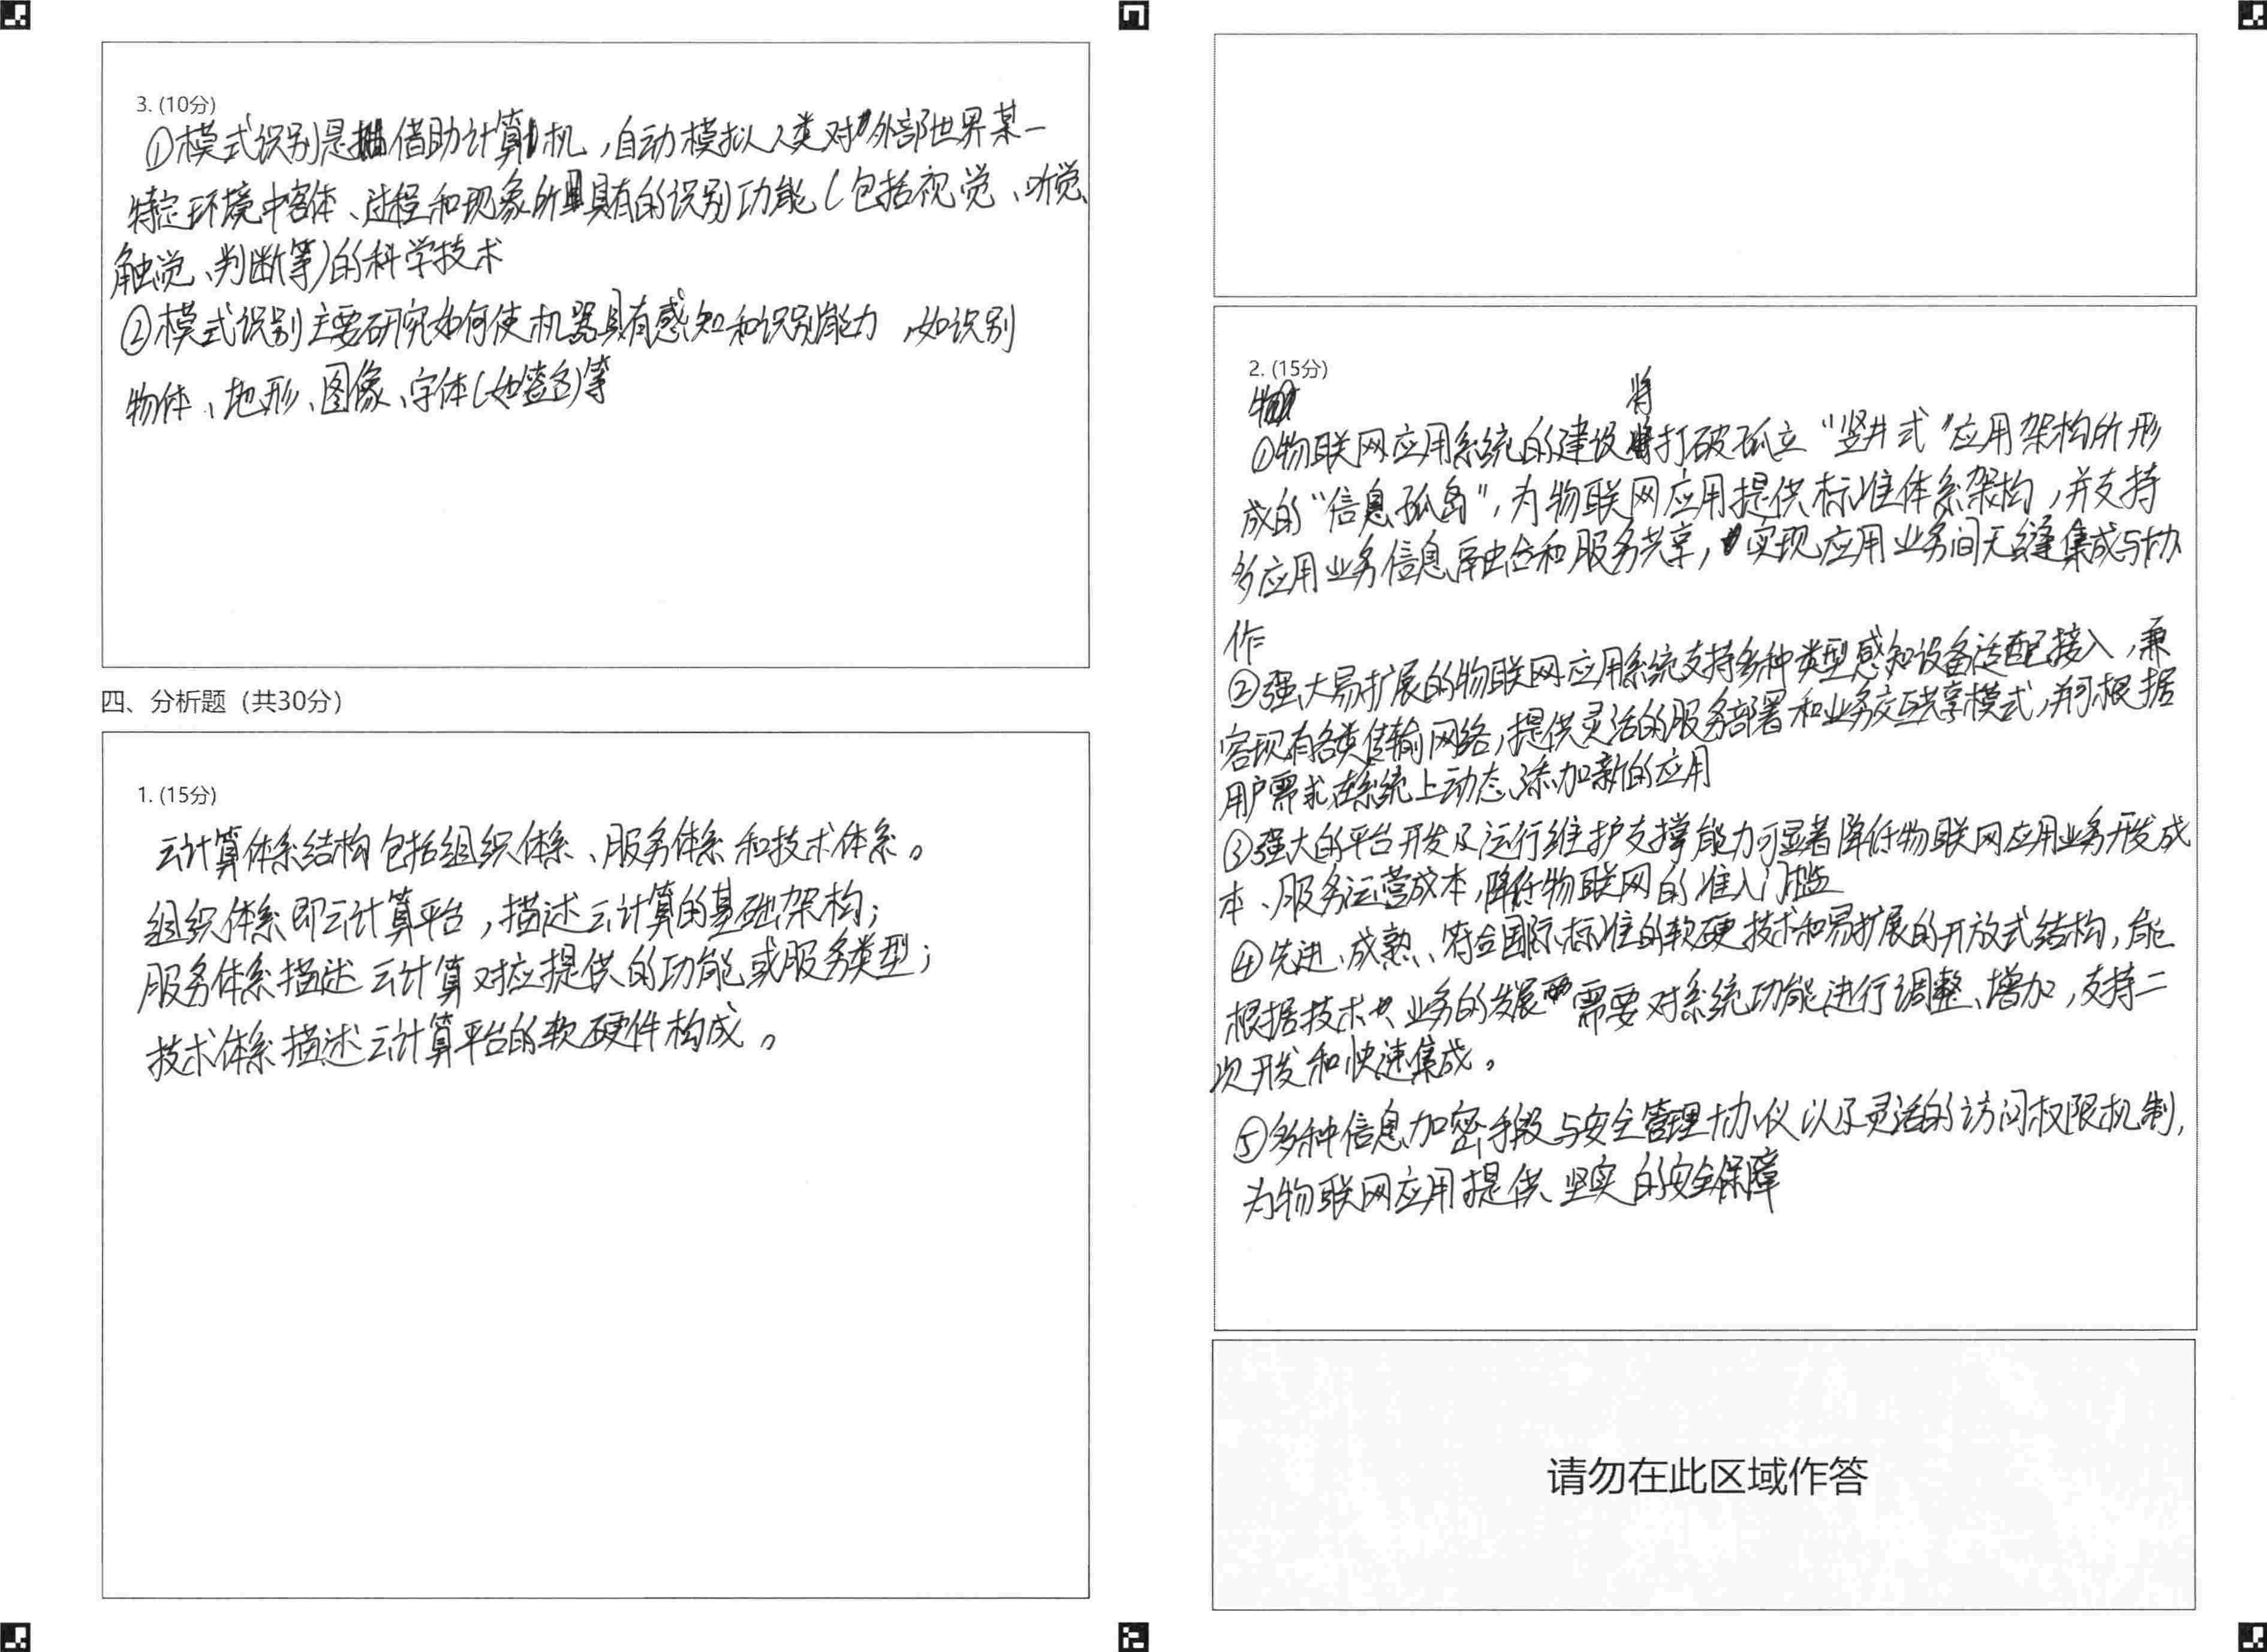 3. (10分)
①模式识别是借助计算机，自动模拟人类对外部世界某一
特定环境中客体、过程和现象所具有的识别功能（包括视觉、听觉、
触觉、判断等）的科学技术
②模式识别主要研究如何使机器具有感知和识别能力，如识别
物体、地形、图像、字体（如签名）等
四、分析题（共30分）
1. (15分)
云计算体系结构包括组织体系、服务体系和技术体系。
组织体系即云计算平台，描述云计算的基础架构；
服务体系描述云计算对应提供的功能或服务类型；
技术体系描述云计算平台的软硬件构成。
2. (15分)
将
①物联网应用系统的建设打破孤立“竖井式”应用架构所形
成的“信息孤岛”，为物联网应用提供标准体系架构，并支持
多应用业务信息融合和服务共享，实现应用业务间无缝集成与协
作
②强大易扩展的物联网应用系统支持多种类型感知设备适配接入，兼
容现有各类传输网络，提供灵活的服务部署和业务交互共享模式，并可根据
用户需求在系统上动态添加新的应用
③强大的平台开发及运行维护支撑能力可显著降低物联网应用业务开发成
本、服务运营成本，降低物联网的准入门槛
④先进、成熟、符合国际标准的软硬技术和易扩展的开放式结构，能
根据技术业务的发展需要对系统功能进行调整、增加，支持二
次开发和快速集成。
⑤多种信息加密手段与安全管理协议以及灵活的访问权限机制，
为物联网应用提供坚实的安全保障
请勿在此区域作答